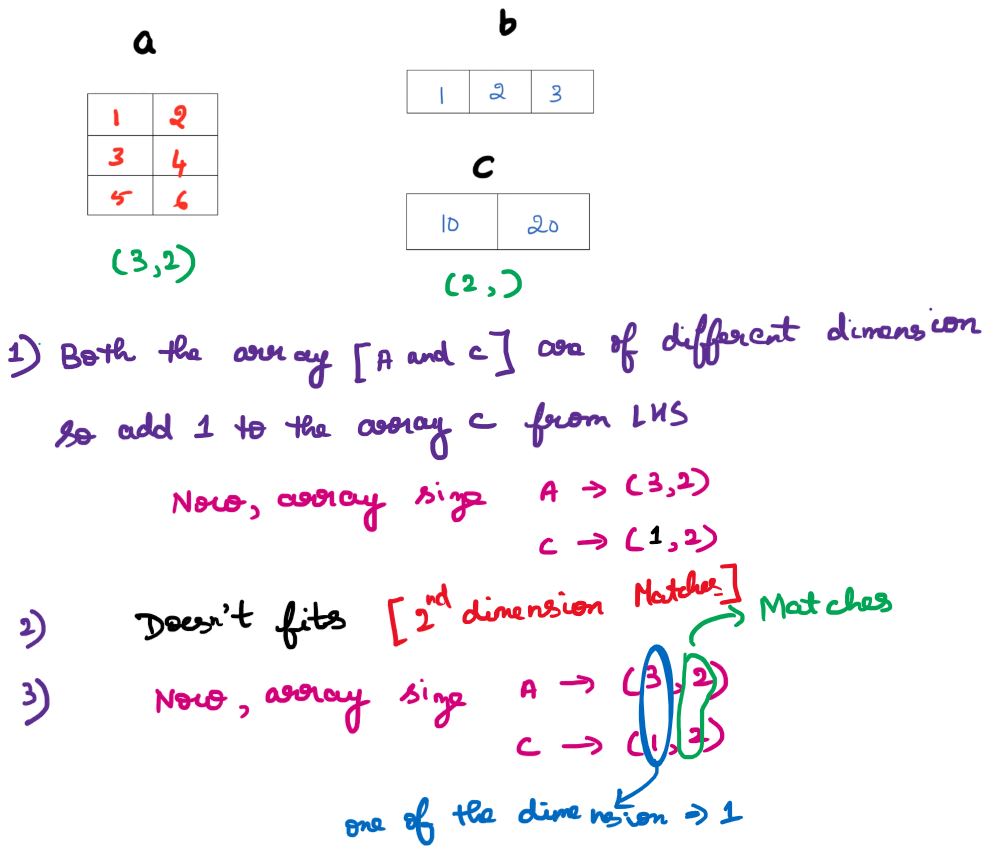 a
1 2
3 4
5 6
(3,2)
b
1 2 3
c
10 20
(2,)
1) Both the array [A and c] are of different dimension
so add 1 to the array c from LHS
Now, array size A → (3,2)
c → (1,2)
2) Doesn't fits [2nd dimension Matches]
Matches
3) Now, array size A → (3,2)
c → (1,2)
one of the dimension ⇒ 1